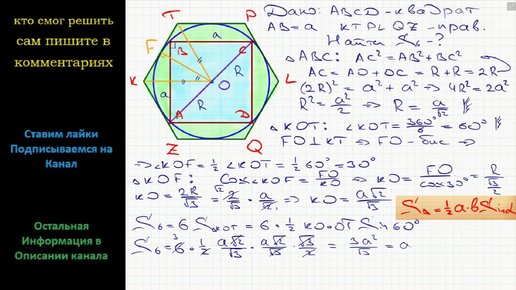 кто смог решить
сам пишите в
комментариях
Ставим лайки
Подписываемся на
Канал
Остальная
Информация в
Описании канала
T P
F B a C
K a R O L
R
A D
Z Q
Дано: ABCD - квадрат
AB = a KTPLQZ - прав.
Найти S₆ - ?
△ABC: AC² = AB² + BC²
AC = AO + OC = R + R = 2R
(2R)² = a² + a² → 4R² = 2a²
R² = a²/2 → R = a/√2
△KOT: ∠KOT = 360°/6 = 60°
FO ⊥ KT → FO - бис →
→ ∠KOF = 1/2 ∠KOT = 1/2 60° = 30°
△KOF: Cos∠KOF = FO/KO → KO = FO/cos30° = R/(√3/2)
KO = 2R/√3 = 2/√3 · a/√2 → KO = a√2/√3
S△ = 1/2 a·b Sinα
S₆ = 6 S△KOT = 6 · 1/2 KO·OT Sin 60°
S₆ = 6 · 1/2 · a√2/√3 · a√2/√3 · √3/2 = 3a²/√3 = a